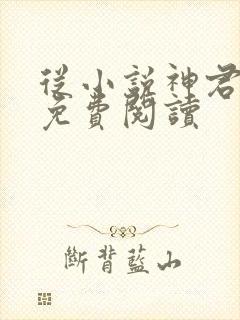 從小說神君
免費閱讀
斷背藍山